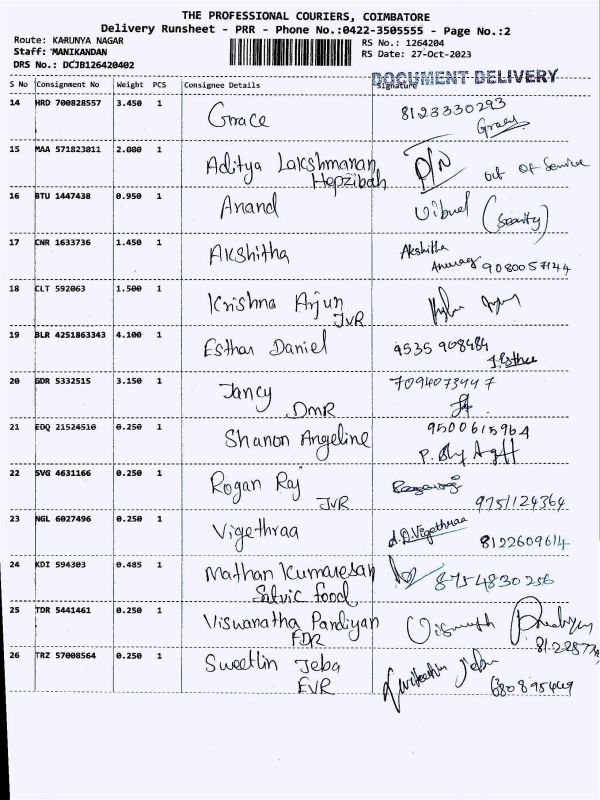 THE PROFESSIONAL COURIERS, COIMBATORE
Delivery Runsheet - PRR - Phone No.:0422-3505555 - Page No.:2
Route: KARUNYA NAGAR
RS No.: 1264204
Staff: MANIKANDAN
RS Date: 27-Oct-2023
DRS No.: DCJB126420402
DOCUMENT DELIVERY
S No Consignment No Weight PCS Consignee Details Signature
14 HRD 700828557 3.450 1 Grace 8123330293
Grace
15 MAA 571823011 2.000 1 Aditya Lakshmanan D/N out of Service
Hepzibah
16 BTU 1447438 0.950 1 Anand
17 CNR 1633736 1.450 1 Akshitha Akshitha
9080057144
18 CLT 592063 1.500 1 Krishna Arjun
JVR
19 BLR 4251863343 4.100 1 Esthar Daniel 9535 908484
J.Esther
20 GDR 5332515 3.150 1 Jancy 7094073447
DMR
21 EDQ 21524510 0.250 1 Sharon Angeline 9500615964
22 SVG 4631166 0.250 1 Rogan Raj
JVR 9751124364
23 NGL 6027496 0.250 1 Vigethraa d.D.Vigethraa
8122609614
24 KDI 594303 0.485 1 Mathan Kumaresan 8754830256
Satvic food
25 TDR 5441461 0.250 1 Viswanatha Pandiyan
FDR
26 TRZ 57008564 0.250 1 Sweetlin Jeba
EVR